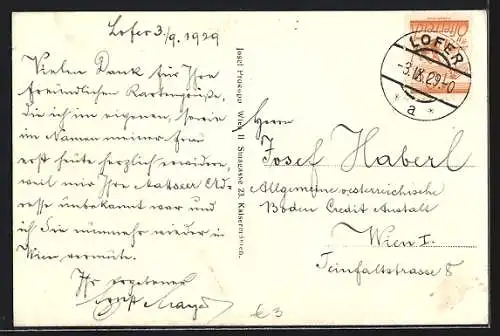 Lofer 3./9. 1929
Vielen Dank für Ihre
freundlichen Kartengrüße,
die ich im eigenen, sowie
im Namen meiner Frau
erst heute herzlich erwidere,
weil mir Ihre Mattseer Ad-
resse unbekannt war und
ich Sie nunmehr wieder in
Wien vermute.
Ihr ergebener
Josef Prokopp Wien II Sturgasse 23. Kaisermühlen.
LOFER
-3.IX.29.-0
* a *
Herrn
Josef Haberl
Allgemeine oesterreichische
Boden Credit Anstalt
Wien I.
Teinfaltstrasse 8
€ 3